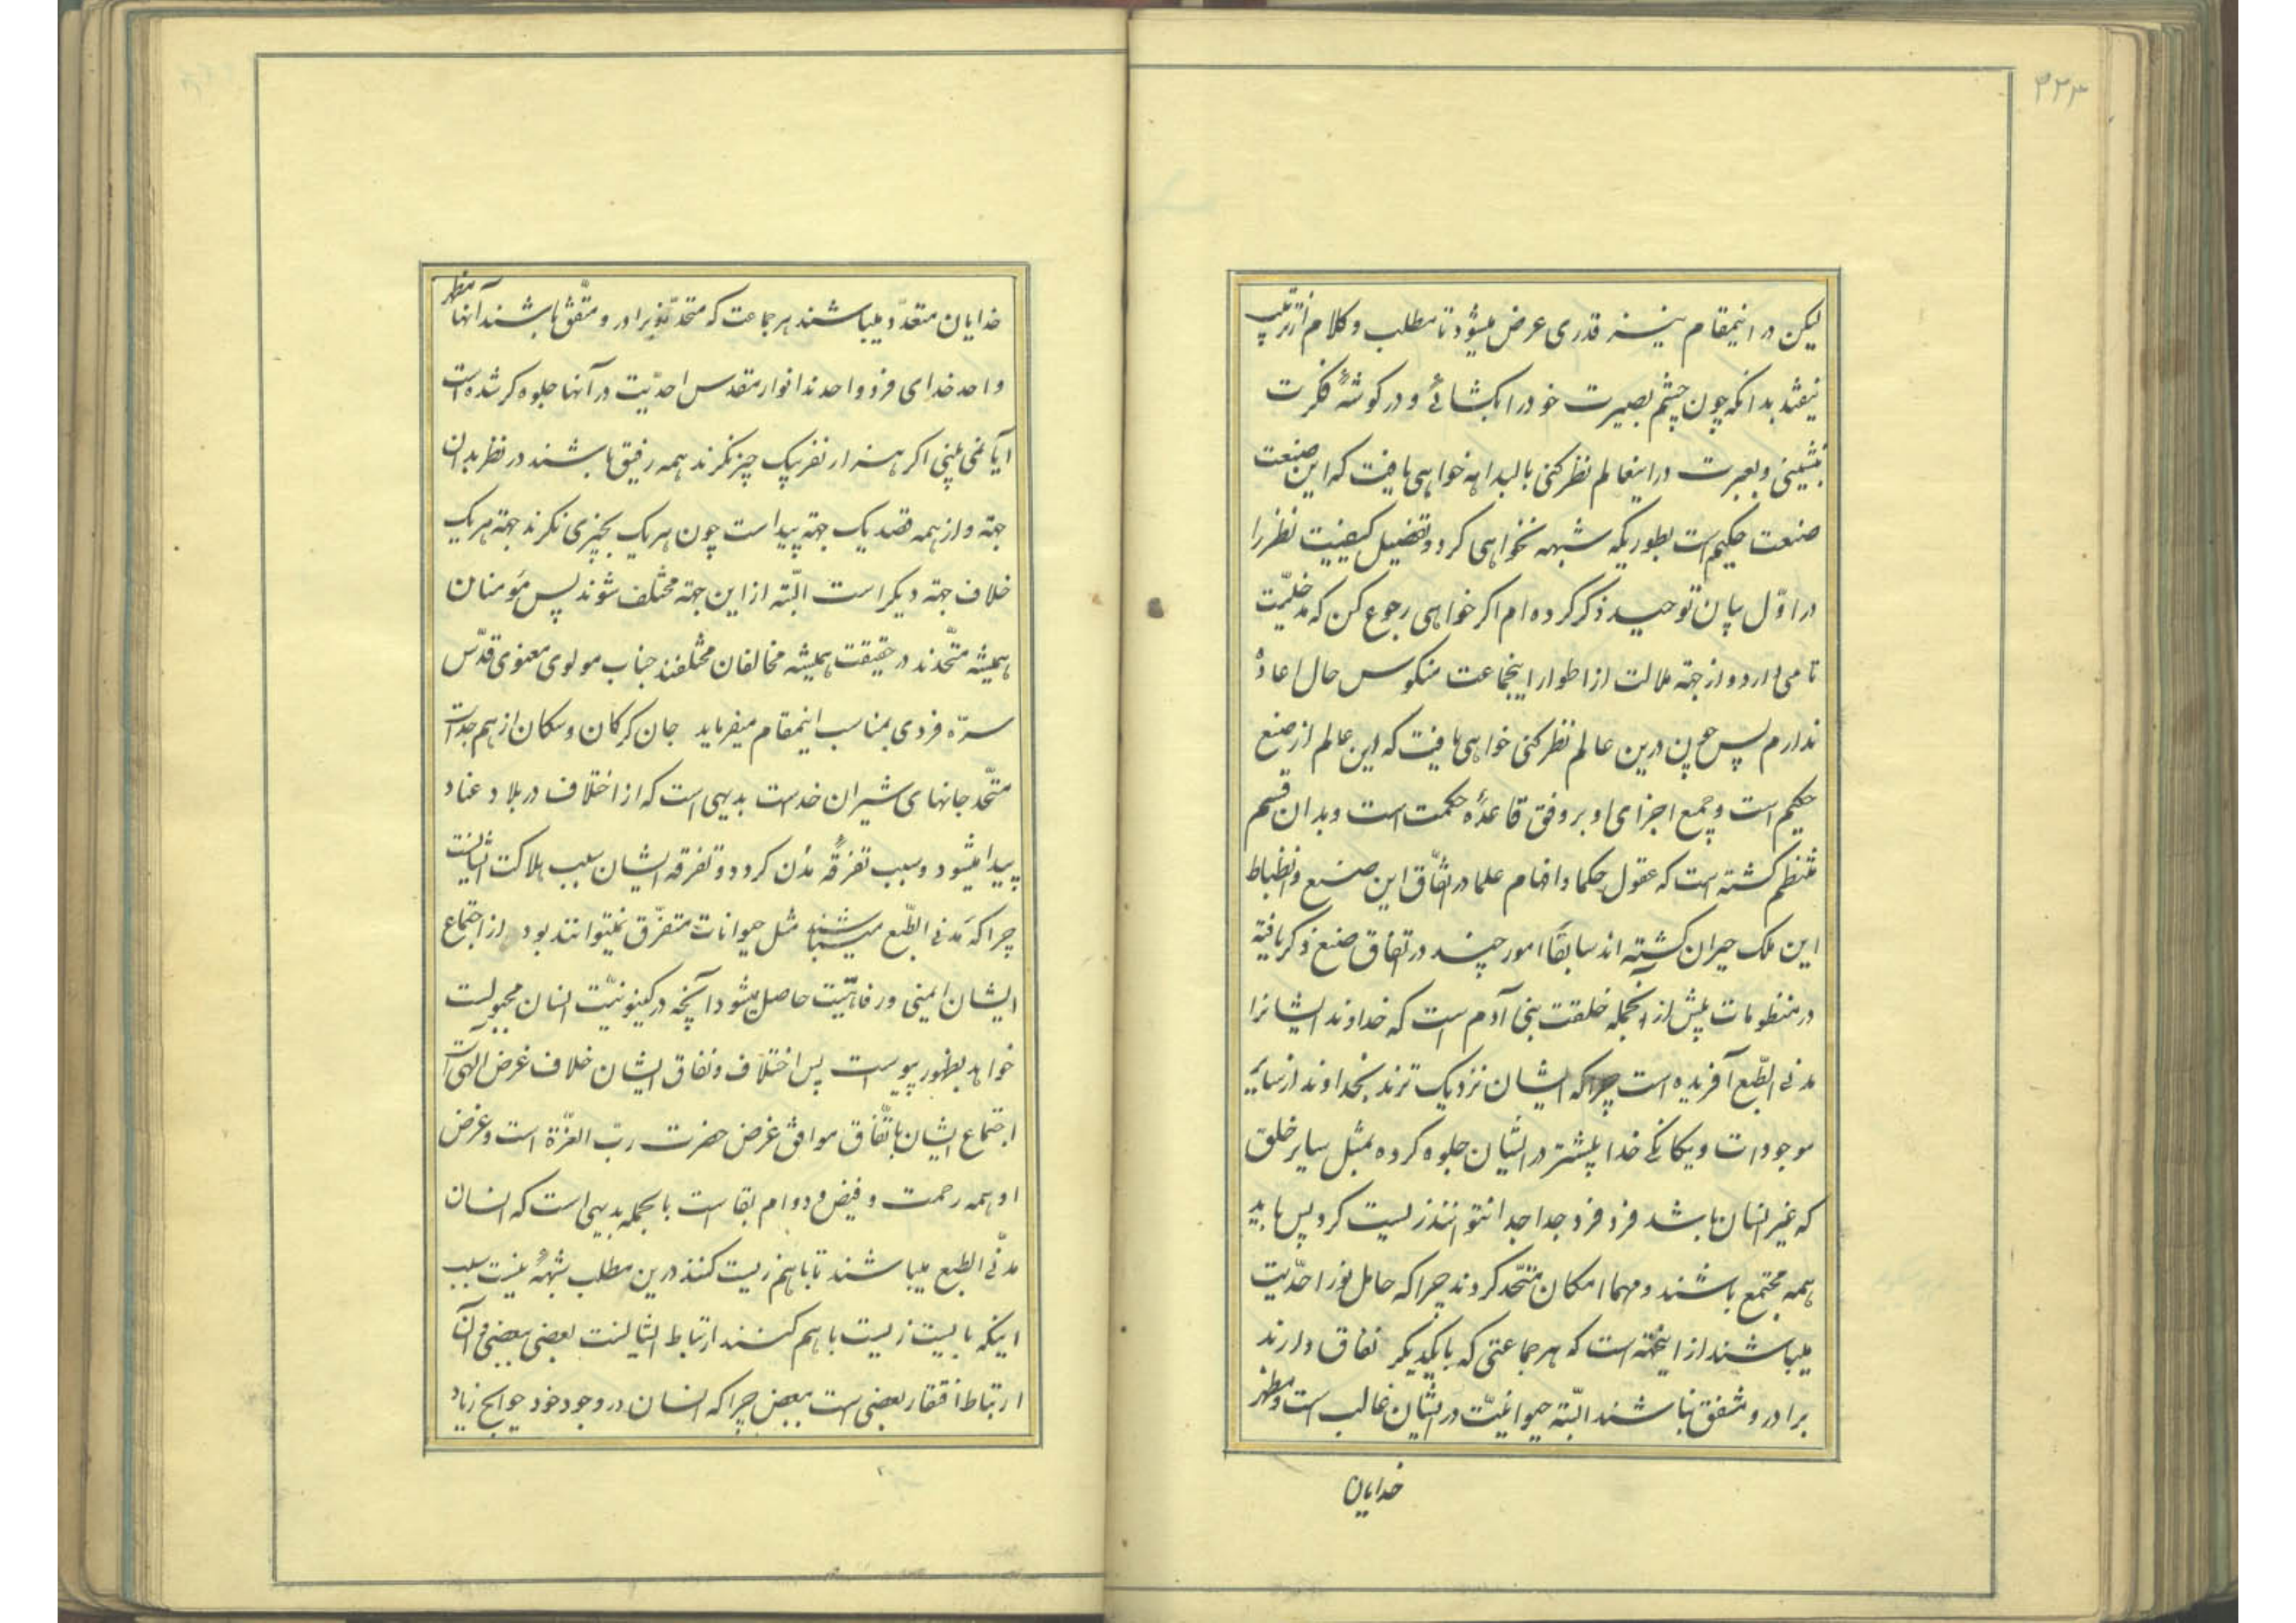 ۳۲۳
لیکن در اینمقام نیز قدری عرض میشود تا مطلب و کلام از ترتیب
نیفتد بدانکه چون چشم بصیرت خود را بگشائی و در کوشهٔ فکرت
بنشینی و بعبرت در اینعالم نظر کنی بالبداهه خواهی یافت که این صنعت
صنعت حکیم است بطوریکه شبهه نخواهی کرد و تفصیل کیفیت نظر را
در اوّل بیان توحید ذکر کرده ام اکر خواهی رجوع کن که مدخلیّت
تامی دارد و از جهة ملالت از اطوار اینجماعت منکوس حال اعادهٔ
ندارم پس چون درین عالم نظر کنی خواهی یافت که این عالم از صنع
حکیم است و جمع اجزای او بر وفق قاعدهٔ حکمت است و بدان قسم
منتظم کشته است که عقول حکما و افهام علما در اتّفاق این صنع و انظباط
این ملک حیران کشته اند سابقاً امور چند در اتقان صنع ذکر یافته
در منظومات پیش از آنجمله خلقت بنی آدم است که خداوند ایشانرا
مدنی الطّبع آفریده است چرا که ایشان نزدیک ترند بخداوند از سایر
موجودات و یکانکی خدا بیشتر در ایشان جلوه کرده بمثل سایر خلق
که غیر انسان باشد فرد فرد جدا جدا نتوانند زیست کرد پس باید
همه مجتمع باشند و مهما امکان متّحد کردند چرا که حامل نور احدّیت
میباشند از اینجهته است که هر جماعتی که با یکدیکر نفاق دارند
برادر و متفق نباشند البتّه حیوانیّت در ایشان غالب است و مظهر
خدایان
خدایان متعدّد میباشند هر جماعت که متحد و برادر و متّفق باشند آنها مظهر
واحد خدای فرد واحدند انوار مقدس احدّیت در آنها جلوه کر شده است
آیا نمی بینی اکر هزار نفر بیک چیز نکرند همه رفیق باشند در نظر بدان
جهة و از همه قصد یک جهة پیداست چون هر یک بچیزی نکرند جهة هر یک
خلاف جهة دیکر است البتّه از این جهة مختلف شوند پس مؤمنان
همیشه متّحدند در حقیقت همیشه مخالفان مختلفند جناب مولوی معنوی قدّس
سرّه فردی بمناسب اینمقام میفرماید جان کرکان و سکان از هم جداست
متّحد جانهای شیران خداست بدیهی است که از اختلاف در بلاد عناد
پیدا میشود و سبب تفرقهٔ مدُن کردد و تفرقه ایشان سبب هلاکت ایشانست
چرا که مَدنی الطّبع میباشند مثل حیوانات متفرّق نمیتوانند بود از اجتماع
ایشان ایمنی و رفاهیّت حاصل میشود آنچه در کینونیّت انسان مجبولست
خواهد بظهور پیوست پس اختلاف و نفاق ایشان خلاف غرض الهی است
اجتماع ایشان باتّفاق موافق غرض حضرت ربّ العزّة است و غرض
او همه رحمت و فیض و دوام بقاست بالجمله بدیهی است که انسان
مدنّی الطبع میباشند تا با هم زیست کنند درین مطلب شبههٔ نیست سبب
اینکه بایست زیست با هم کنند ارتباط ایشانست بعضی ببعضی و آن
ارتباط افتقار بعضی است ببعض چرا که انسان در وجود خود حوایج زیاد